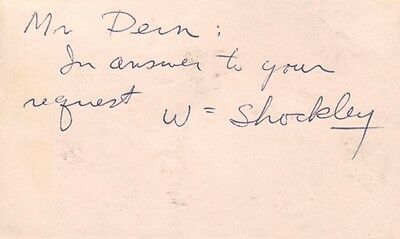 Mr Dern:
In answer to your
request W = Shockley